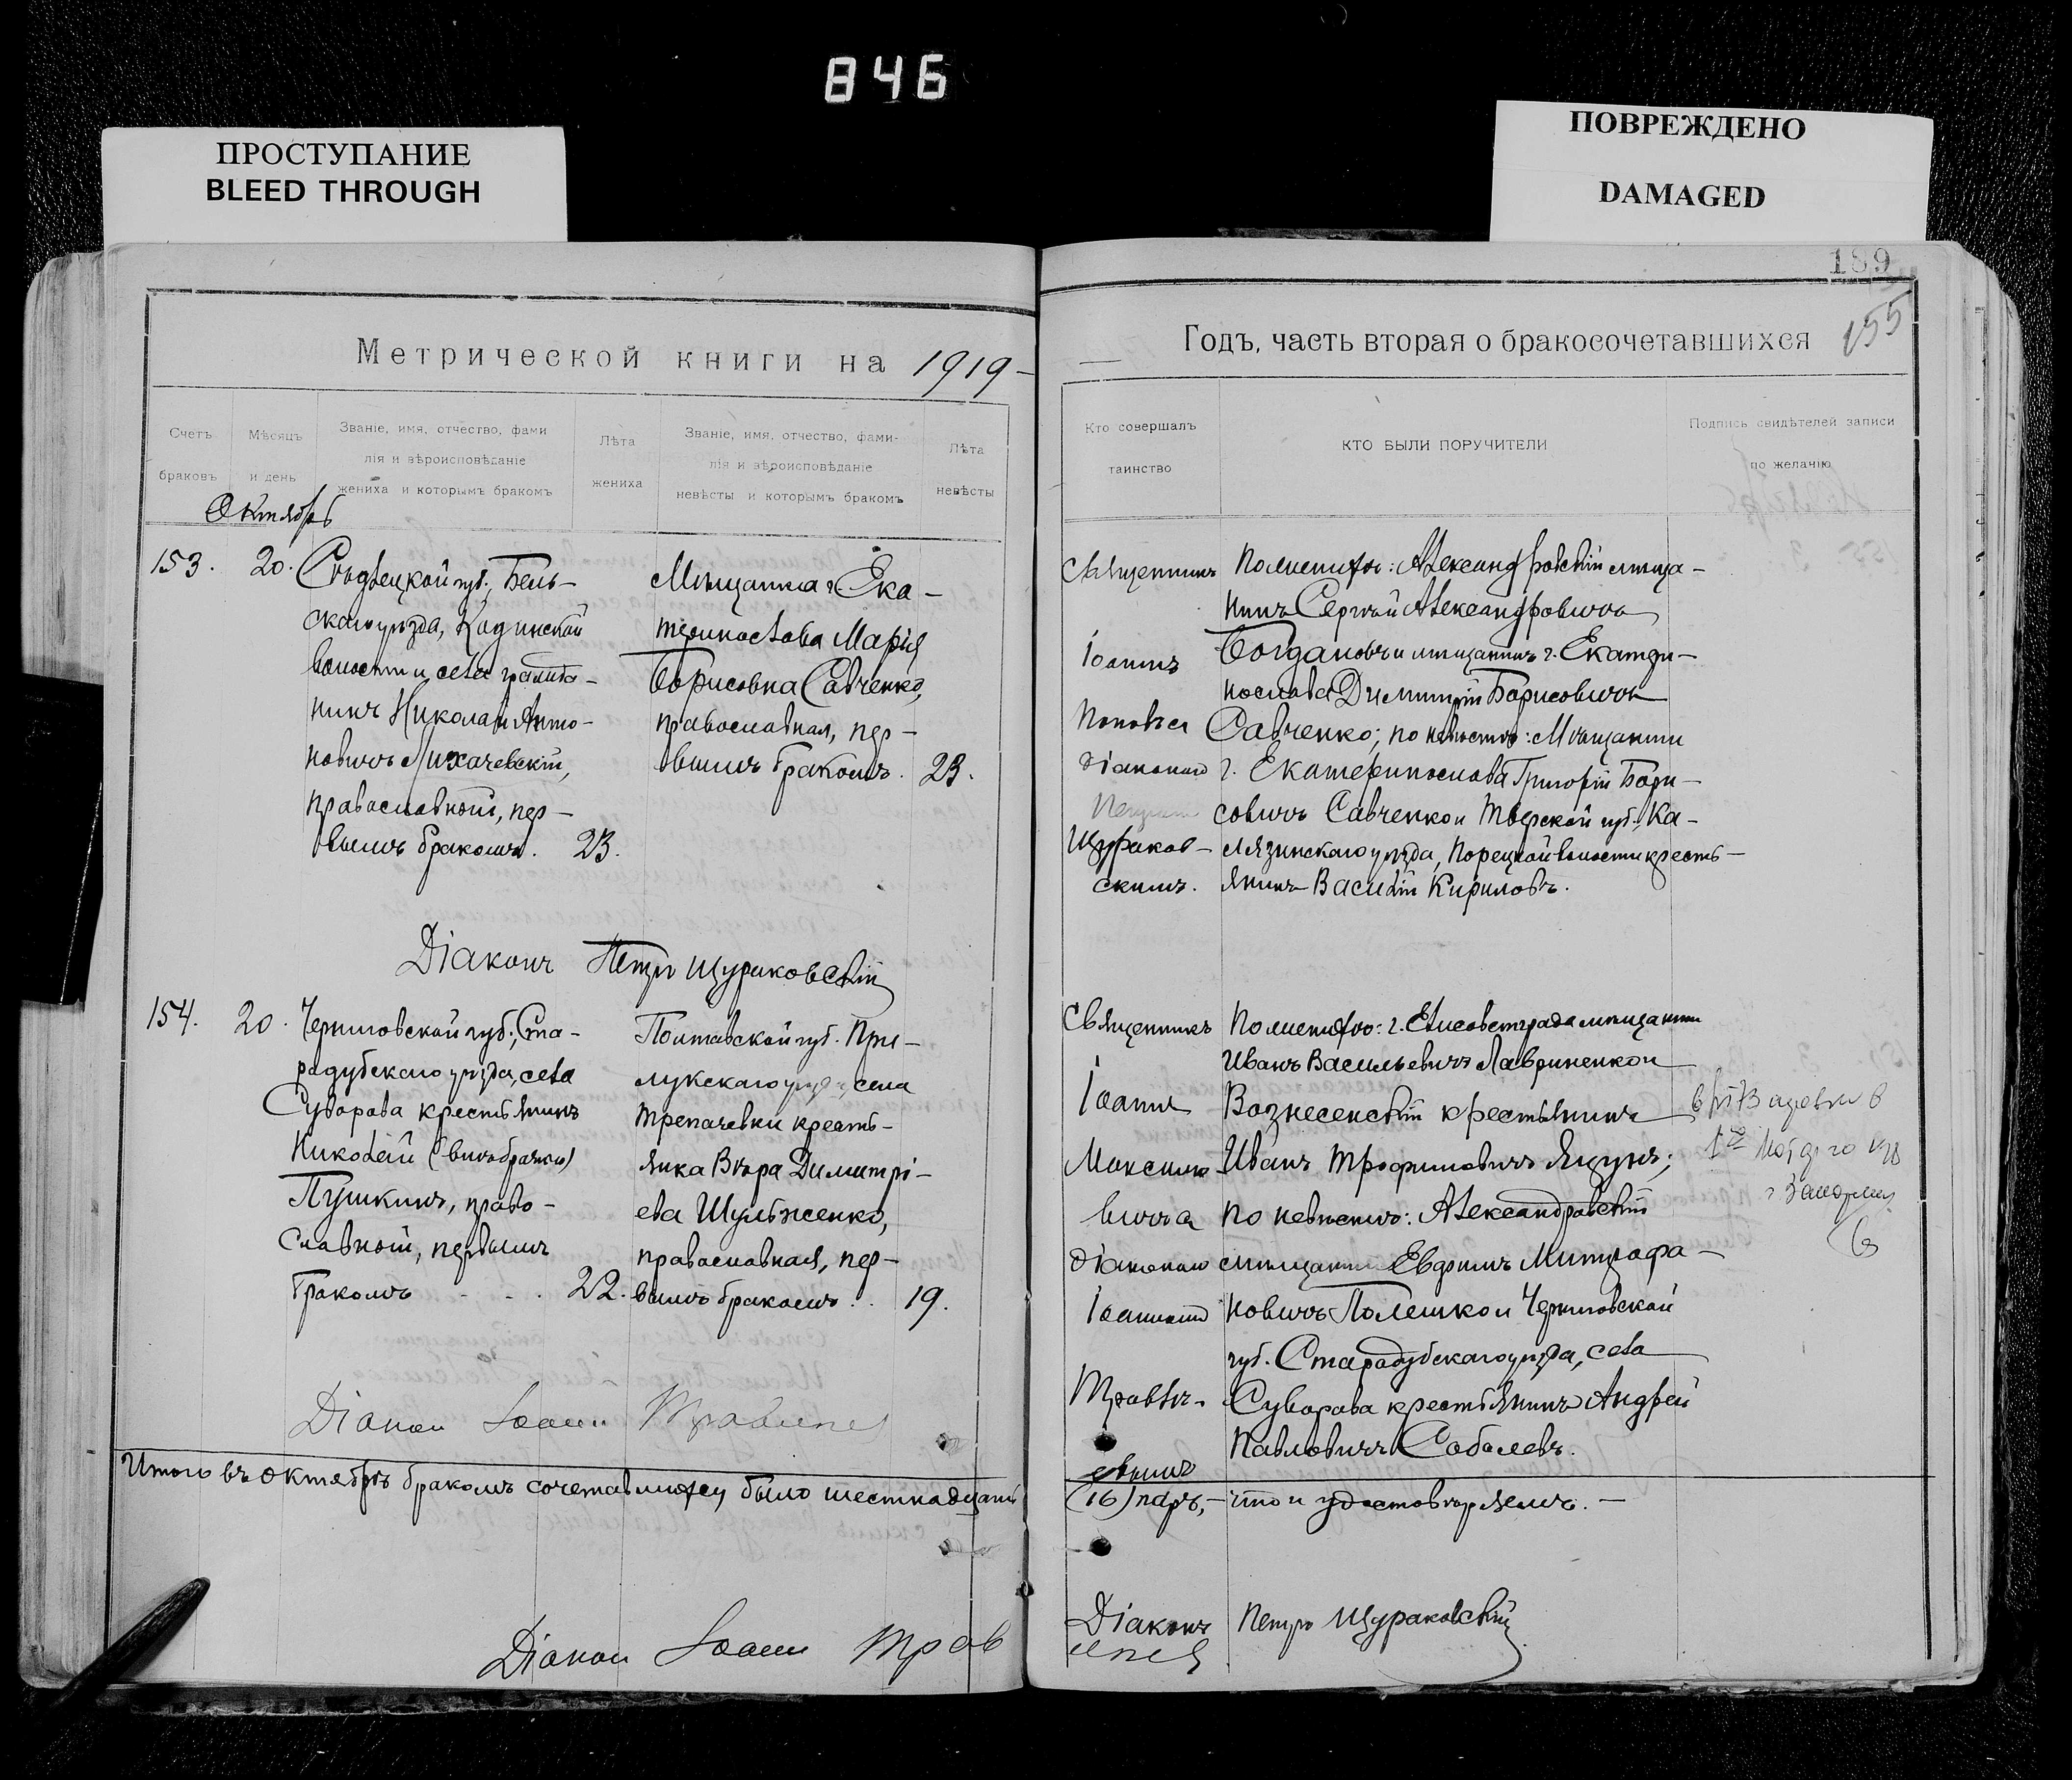 846
ПРОСТУПАНИЕ
BLEED THROUGH
ПОВРЕЖДЕНО
DAMAGED
189
155
Метрической книги на 1919
Годъ, часть вторая о бракосочетавшихся
Счетъ браковъ
Мѣсяцъ и день
Званіе, имя, отчество, фами
лія и вѣроисповѣданіе
жениха и которымъ бракомъ
Лѣта жениха
Званіе, имя, отчество, фами-
лія и вѣроисповѣданіе
невѣсты и которымъ бракомъ
Лѣта невѣсты
Кто совершалъ таинство
КТО БЫЛИ ПОРУЧИТЕЛИ
Подпись свидѣтелей записи
по желанію
Октябрь
153. 20.
губ., Бѣль-
скаго уѣзда,
волости и села гражда-
нинъ Николай Анто-
новичъ Лихачевскій,
православный, пер-
вымъ бракомъ. 23.
Мѣщанка г. Ека-
теринослава Марія
Борисовна Савченко,
православная, пер-
вымъ бракомъ. 23.
Священникъ
Іоаннъ
Поповъ съ
діакономъ
Петромъ
Щураков-
скимъ.
По женихѣ: Александровскій мѣща-
нинъ Сергѣй Александровичъ
Богдановъ и мѣщанинъ г. Екатери-
нослава Димитрій Борисовичъ
Савченко; по невѣстѣ: Мѣщанинъ
г. Екатеринослава Григорій Бори-
совичъ Савченко и Тверской губ., Ка-
лязинскаго уѣзда, Порецкой волости кресть-
янинъ Василій Кириловъ.
Діаконъ Петръ Щураковскій
154. 20.
Черниговской губ., Ста-
радубскаго уѣзда, села
Суворова крестьянинъ
Николай
Пушкинъ, право-
славный, первымъ
бракомъ . . . 22.
Полтавской губ. При-
лукскаго уѣзда, села
крестъ-
янка Вѣра Димитрі-
ева Шульженко,
православная, пер-
вымъ бракомъ . . 19.
Священникъ
Іоаннъ
Максимо
вичъ съ
діакономъ
Іоанномъ
По женихѣ: г. Елисаветграда мѣщанинъ
Иванъ Васильевичъ Лавриненко и
Вознесенскій крестьянинъ
Иванъ Трофимовичъ Яцунъ;
по невѣстѣ: Александровскій
мѣщанинъ Евдокимъ Митрофа-
новичъ Полешко и Черниговской
губ. Старадубскаго уѣзда, села
Суворова крестьянинъ Андрей
Павловичъ Соболевъ.
Діакон Іоанн
Итого въ октябрѣ бракомъ сочетавшихся было шестнадцать
(16) паръ, - что и удостовѣряемъ. -
Діаконъ Петръ Щураковскій
Діакон Іоанн